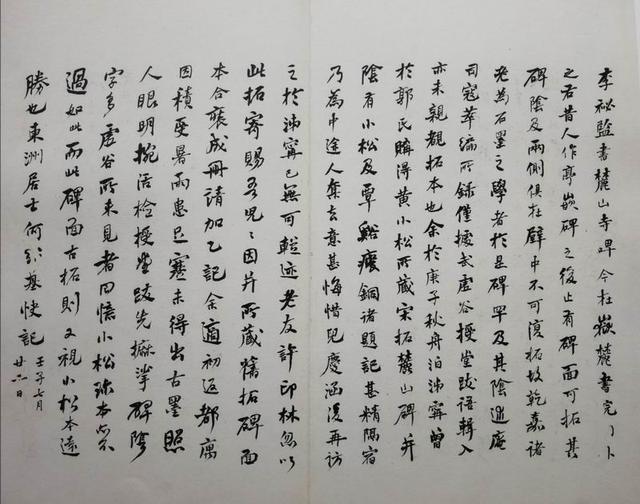 李祕監書麓山寺碑今在嶽麓書
之右昔人作亭嵌碑之後止有碑面可拓其
碑陰及兩側俱在壁中不可復拓故乾嘉諸
老為石墨之學者於是碑罕及其陰述庵
司寇萃編所録僅據武虛谷授堂跋語輯入
亦未親覩拓本也余於庚子秋舟泊泲寧曾
於郭氏購得黃小松所藏宋拓麓山碑并
陰有小松及覃谿瘦銅諸題記甚精隔宿
乃為中途人奪去意甚悔惜兒慶涵復再訪
之於泲寧已無可蹤迹老友許印林忽以
此拓寄賜吾兒〻因并所藏舊拓碑面
本合裝成冊請加乙記余適初返都寓
因積受暑雨患足蹇未得出古墨照
人眼明捥活檢授堂跋先摭拏碑陰
字多虛谷所未見者回憶小松珍本當不
過如此而此碑面古拓則又視小松本遠
勝也東洲居士何紹基快記
壬子七月
廿六日